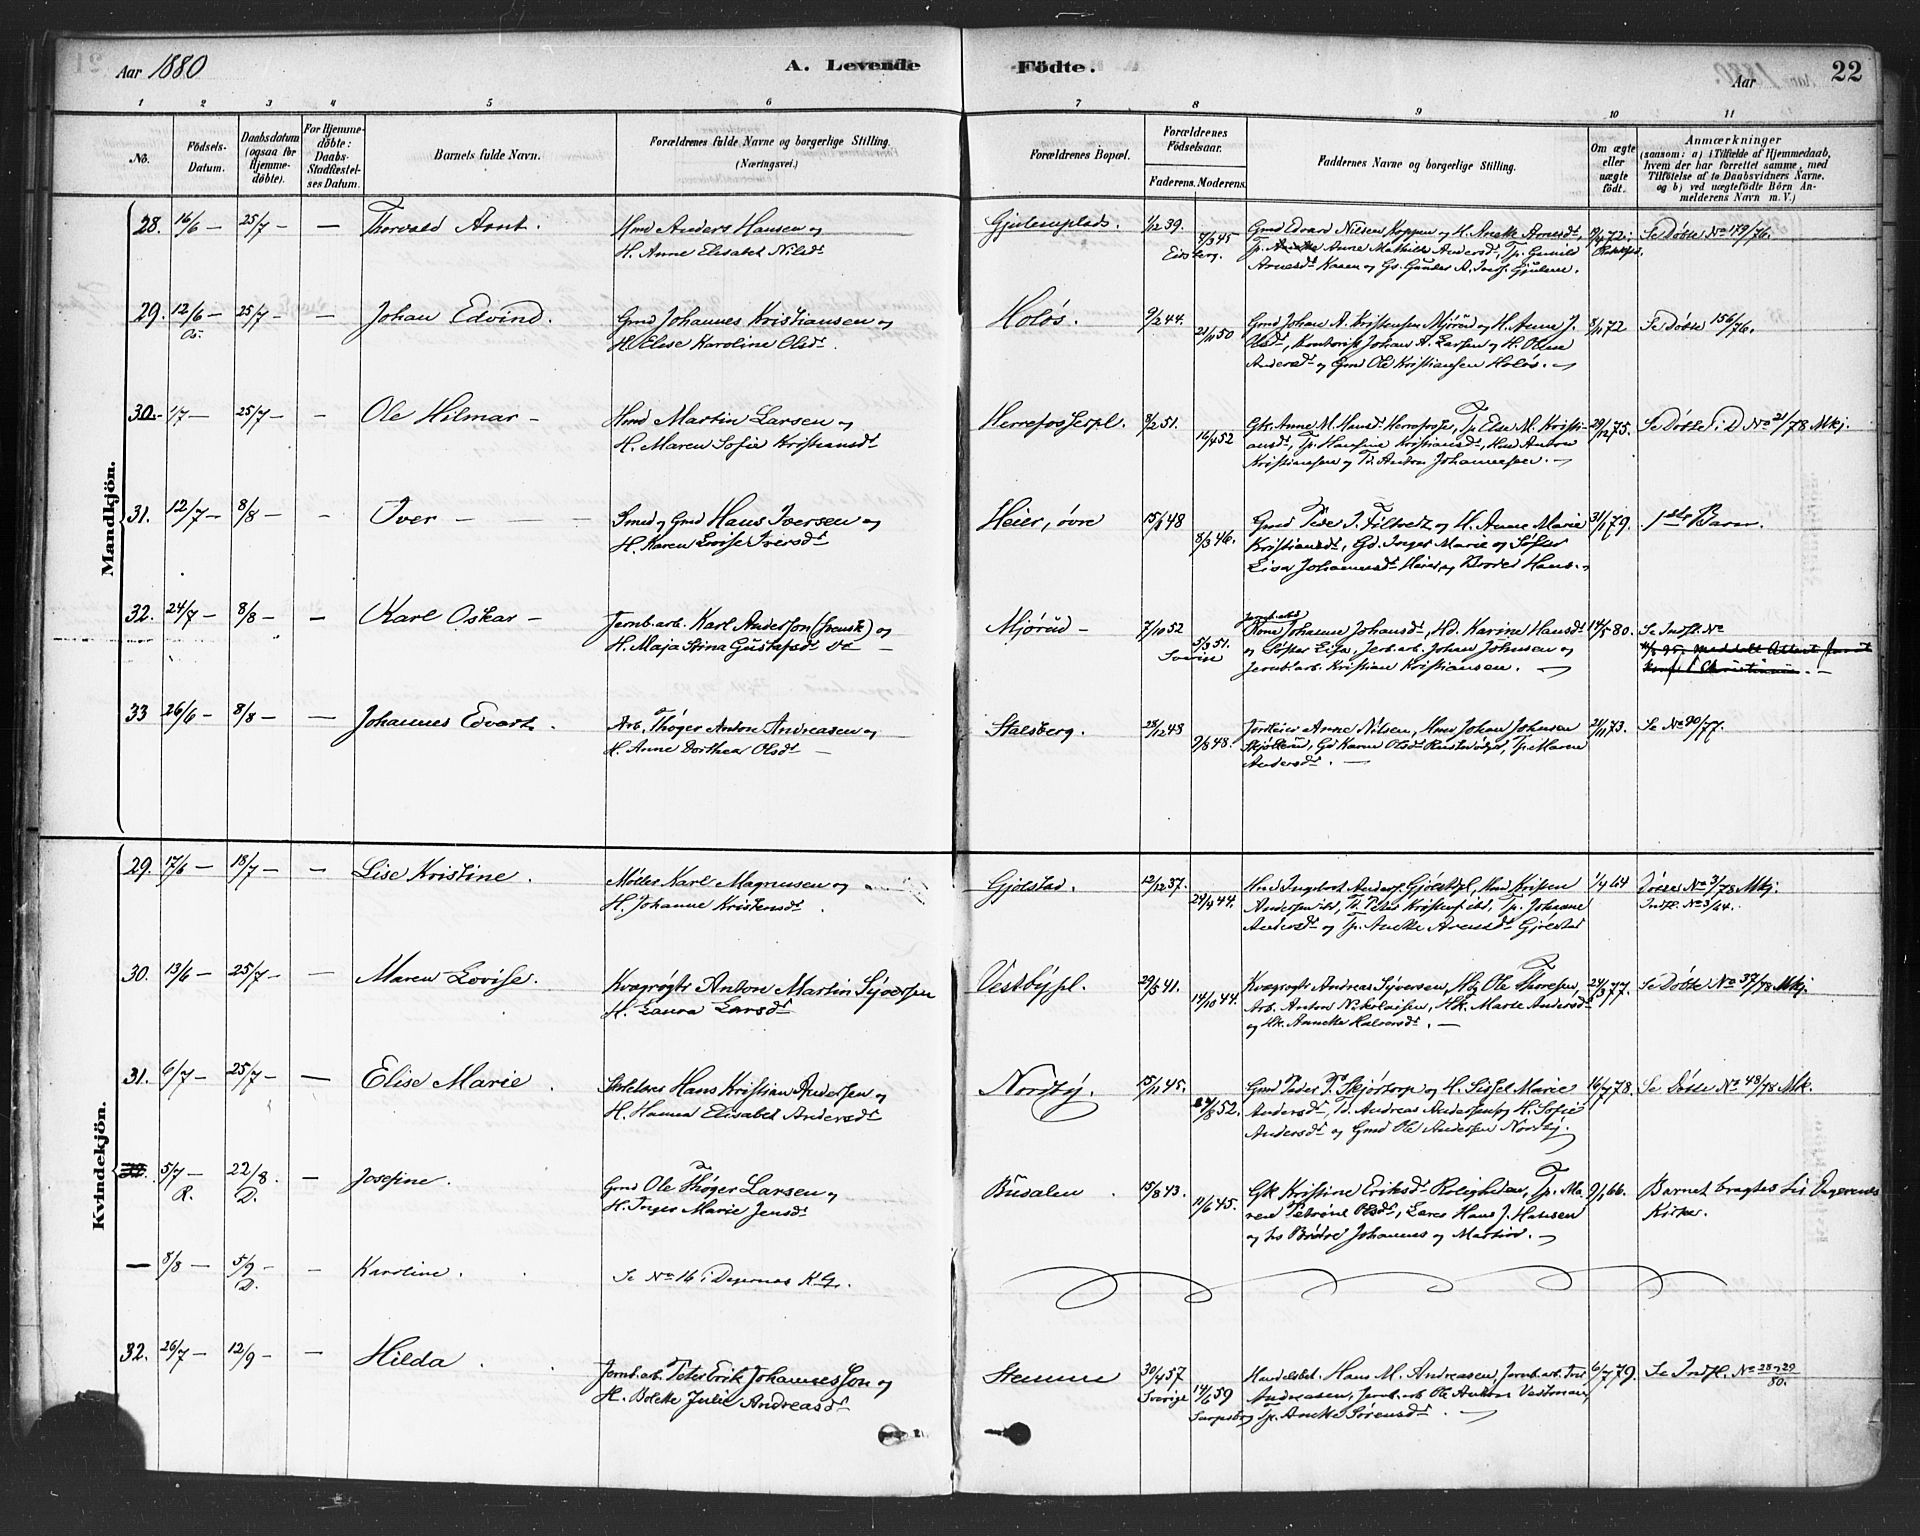 Aar 1880
A. Levende
Födte.
Aar
22
1 2 3 4 5 6 7 8 9 10 11
No.
Födsels-
Datum.
Daabsdatum
(ogsaa for
Hjemme-
döbte).
For Hjemme-
döbte:
Daabs-
Stadfæstel-
ses Datum.
Barnets fulde Navn.
Forældrenes fulde Navne og borgerlige Stilling.
(Næringsvei.)
Forældrenes Bopæl.
Forældrenes
Födselsaar.
Faderens. Moderens.
Faddernes Navne og borgerlige Stilling.
Om ægte
eller
uægte
födt.
Anmærkninger
(saasom: a) i Tilfælde af Hjemmedaab,
hvem der har forrettet samme, med
Tilföielse af to Daabsvidners Navne.
og b) ved uægtefödte Börn An-
melderens Navn m. V.)
Mandkjön.
28. 16/6 — 25/7 — — Thorvald Arnt.
Hmd Anders Hansen og
H. Anne Elisabet Nilsdt
Gjulemplads. 1/12 39. 7/3 45
Eidsberg.
Gmd Edvard Nilsen Koppen og H. Anette Arnesdt,
Tp. Anne Mathilde Andersdt, Tp. Gunild
72. Se Döbte No 179/76.
29. 12/6 — 25/7 — — Johan Edvind.
Gmd Johannes Kristiansen og
H. Elise Karoline Olsdt.
Holøs. 9/2 44. 21/11 50
Gmd Johan A. Kristensen Mjörud og H. Anne J.
Olsdt, Kontorist Johan A. Larsen og H. Oline
Andersdt og Gmd Ole Kristiansen Holøs. —
8/11 72 Se Döbte 156/76.
30. 1/7 — 25/7 — - Ole Hilmar —
Hmd Martin Larsen og
H. Maren Sofie Kristiansdt
Herrefosserpl. 8/2 51. 16/4 52
Gk. Anne M. Hansdt Herrefosse, Tp. Else M. Kristi-
ansdt, Tp. Hansine Kristiansdt, Hmd Anton
Kristiansen og Td. Anton Johannesen. —
29/12 75. Se Döbte i D No 21/78 Mkj.
31. 12/7 — 8/8 — - Iver —
Smed og Gmd Hans Iversen og
H. Karen Lovise Iversdt
Heier, øvre 48 8/3 46.
Kristiansdt, Gd. Inger Marie og Søster
Lisa Johannesdt Heier, og Broder Hans. —
31/1 79. 1ste Barn.
32. 24/7 — 8/8 — — Karl Oskar —
Jernb.arb. Karl Anderson (svensk) og
H. Maja Stina Gustafsdt —
Mjörud — 7/10 52 5/3 51.
Kone Johanne Johansdt, Hd. Karine Hansdt
og Søster Lisa, Jerb.arb. Johan Johnsen og
Jernb.arb. Kristian Kristiansen. —
14/5 80. Se Indfl. No
33 26/6 — 8/8 — — Johannes Edvart.
Arb. Thøger Anton Andreasen og
H. Anne Dorthea Olsdt —
Stalsberg. 28/12 48 9/8 48.
Anne Nilsen, Hmd Johan Johnsen
Andersdt. —
21/11 73. Se No 90/77.
Kvindekjön.
29. 17/6 — 18/7 — — Lise Kristine.
Møller Karl Magnussen og
H. Johanne Kristensdt.
Gjølstad. 12/12 37. 24/9 44.
1/4 64 Döbte No 3/78 Mkj.
Indfl. No 3/64.
Andersdt og Tp. Anette Arensdt Gjølstad
30. 13/6 — 25/7 — — Maren Lovise.
Kvægrøgter Anton Martin Syversen
H. Laura Larsdt
Vestbypl. 29/5 41. 14/10 44.
Kvægrøgter Andreas Syversen, Hg. Ole Thoresen,
Arb. Anton Nikolaisen, Hk. Marte Andersdt
og Hk. Annette Halvorsdt. —
24/3 77. Se Döbte No 37/78 Mkj.
31. 6/7 — 25/7 — — Elise Marie.
Hans Kristian Andersen og
H. Hanna Elisabet Andersdt
Nordby. 15/11 45. 52.
Gmd Peder P. Skjørtorp og H. Sissel Marie
Andersdt, Td. Andreas Andersen og H. Sofie
Andersdt og Gmd Ole Andersen Nordby.
16/7 78. Se Döbte No 48/78 Mk.
5/7 — R. 22/8 D. — Josefine.
Gmd Ole Thøger Larsen og
H. Inger Marie Jensdt
Busalen. 15/8 43. 11/6 45.
Gk Kristine Eriksdt Roligheden, Tp. Ma-
ren Petrine Olsdt, Lars Hans J. Hansen
og hs Brödre Johannes og Martin. —
9/1 66. Barnet bragtes til Degernes
Kirke.
— 8/8 — 5/9 — D. — Karoline.
Se No 16 i Degernes K.G.
32. 26/7 — 12/9 — — Hilda.
Jernb.arb. Peter Erik Johannesson og
H. Bolette Julie Andreasdt
Stemme 30/4 57 Sverige 14/6 59 Sarpsborg
Handelsbet. Hans M. Andreasen, Jernb.arb.
Andreasen, Jernb.arb Ole Anton Vestman,
Tp. Anette Sørensdt. —
6/7 79. Se Indfl. No 28 og 29/80.